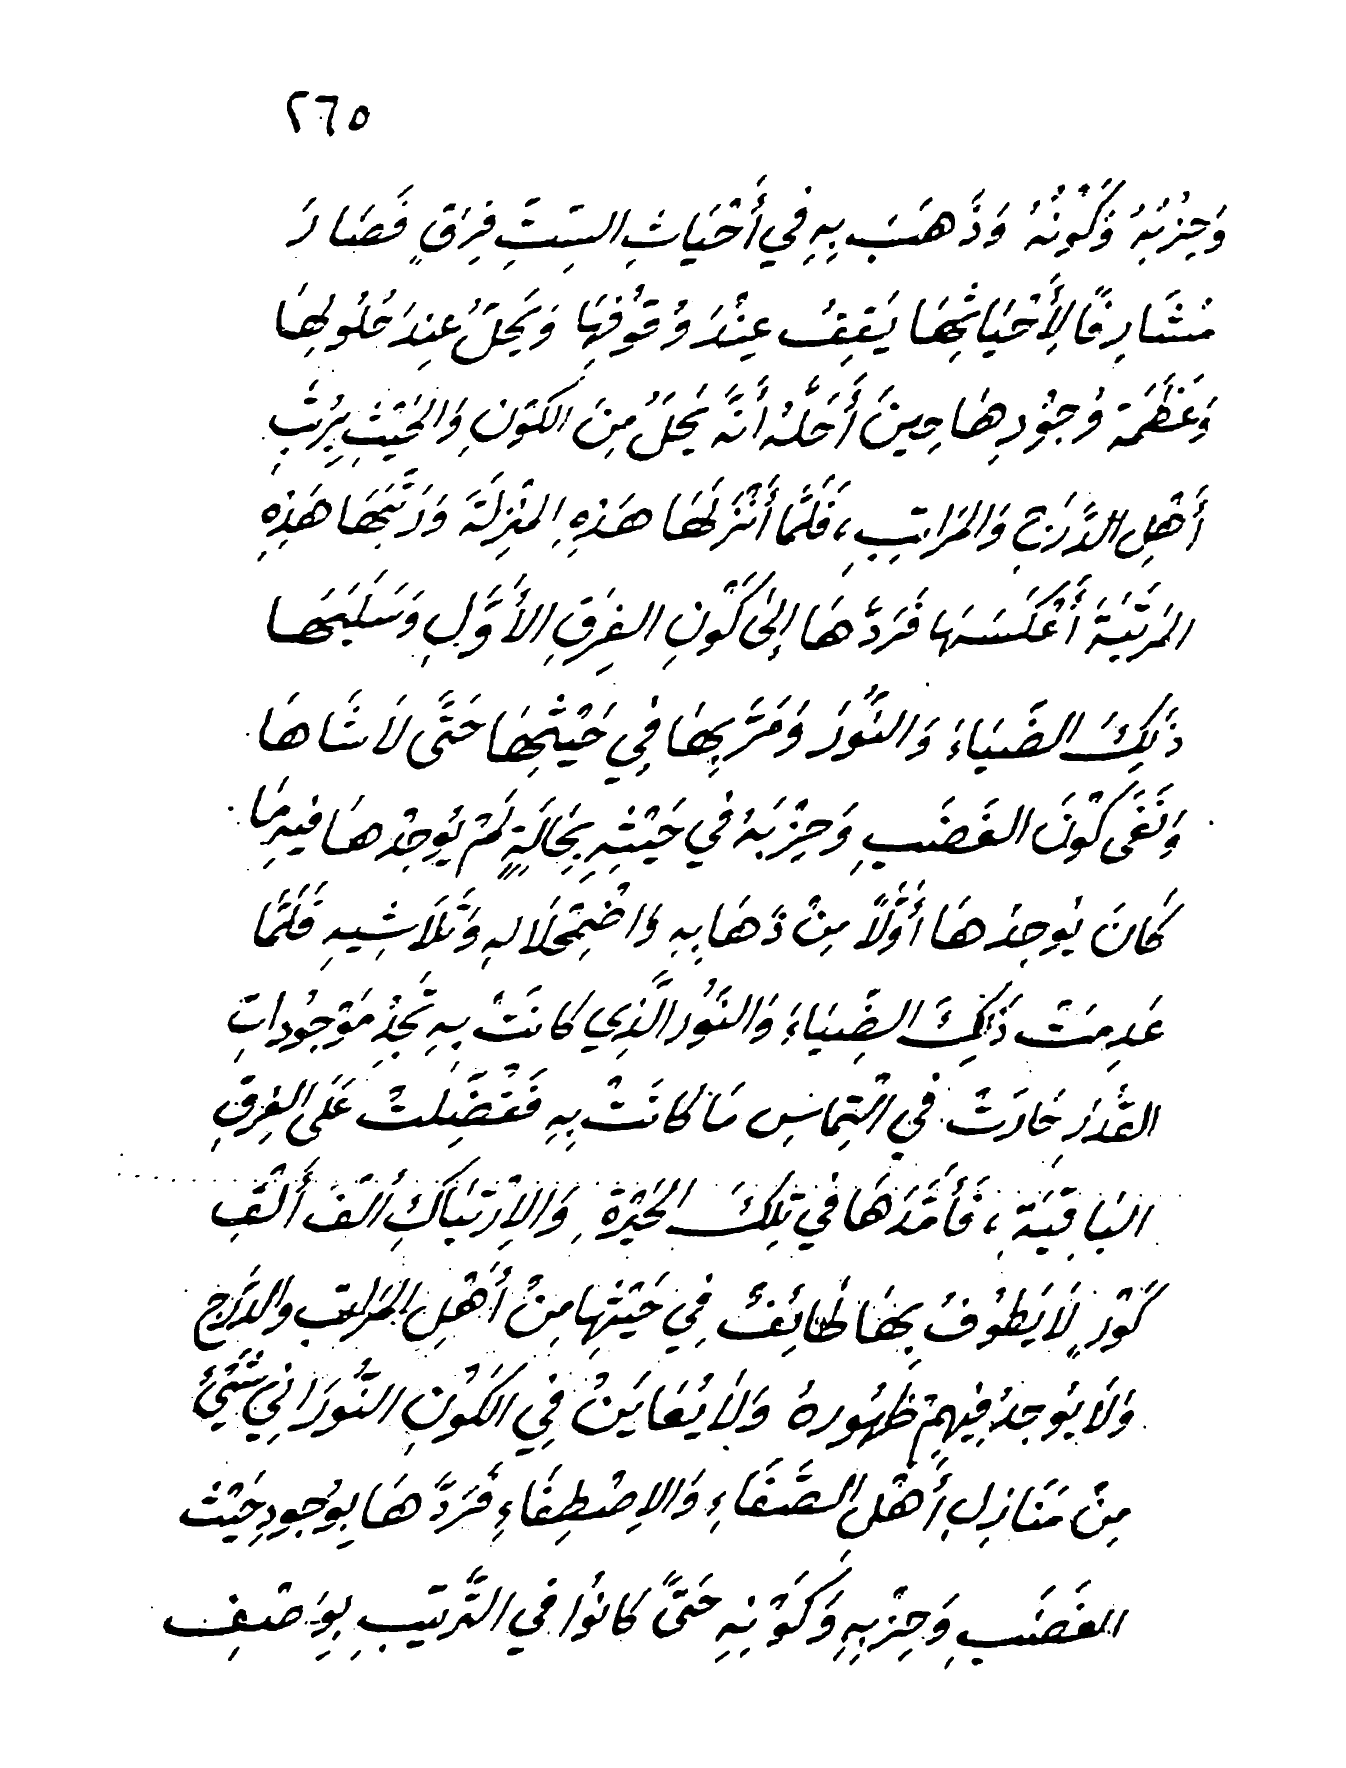 ٢٦٥
وَحِزْبُهُ وَكَوْنُهُ وَذَهَبَ بِهِ فِي أَحْيَاثِ السِتَّتِ فِرَقٍ فَصَارَ
مُشَارِفًا لِأَحْيَاثِهَا يَقِفُ عِنْدَ وُقُوفِهَا وَيَحِلُّ عِنْدَ حُلُولِهَا
وَعَظَمَةِ وُجُودِهَا حِينَ أَحَلَّهُ أَنَّهُ يَحِلُّ مِنَ الكَوْنِ وَالحَيْثِ بِرُتَبِ
أَهْلِ الدَّرَجِ وَالمَرَاتِبِ، فَلَمَّا أَنْزَلَهَا هَذِهِ المَنْزِلَةَ وَرَتَّبَهَا هَذِهِ
المَرْتَبَةَ أَعْكَسَهَا فَرَدَّهَا إِلَى كَوْنِ الفِرَقِ الأَوَّلِ وَسَلَبَهَا
ذَلِكَ الضِّيَاءَ وَالنُّورَ وَمَرَّ بِهَا فِي حَيْثِهَا حَتَّى لَاشَاهَا
وَنَفَى كَوْنَ الغَضَبِ وَحِزْبَهُ فِي حَيْثِهِ بِحَالَةٍ لَمْ يُوجِدْهَا فِيهِ مَا
كَانَ يُوجِدُهَا أَوَّلًا مِنْ ذَهَابِهِ وَاضْمِحْلَالِهِ وَتَلَاشِيهِ فَلَمَّا
عَدِمَتْ ذَلِكَ الضِّيَاءَ وَالنُّورَ الَّذِي كَانَتْ بِهِ تَجِدُ مَوْجُودَاتِ
القَدَرِ حَارَتْ فِي الْتِمَاسِ مَا كَانَتْ بِهِ فَفُضِّلَتْ عَلَى الفِرَقِ
البَاقِيَةِ، فَأَمَدَّهَا فِي تِلْكَ الحَيْرَةِ وَالإِرْتِبَاكِ أَلْفَ أَلْفِ
كَوْرٍ لَا يَطُوفُ بِهَا طَائِفٌ فِي حَيْثِهَا مِنْ أَهْلِ المَرَاتِبِ وَالدَّرَجِ
وَلَا يُوجَدُ فِيهِمْ ظُهُورهُ وَلَا يُعَايَنُ فِي الكَوْنِ النُّورَانِي شَيْئٌ
مِنْ مَنَازِلِ أَهْلِ الصَّفَاءِ وَالإِصْطِفَاءِ فَرَدَّهَا بِوُجُودِ حَيْثِ
الغَضَبِ وَحِزْبِهِ وَكَوْنِهِ حَتَّى كَانُوا فِي التَّرْتِيبِ بِوَصْفِ